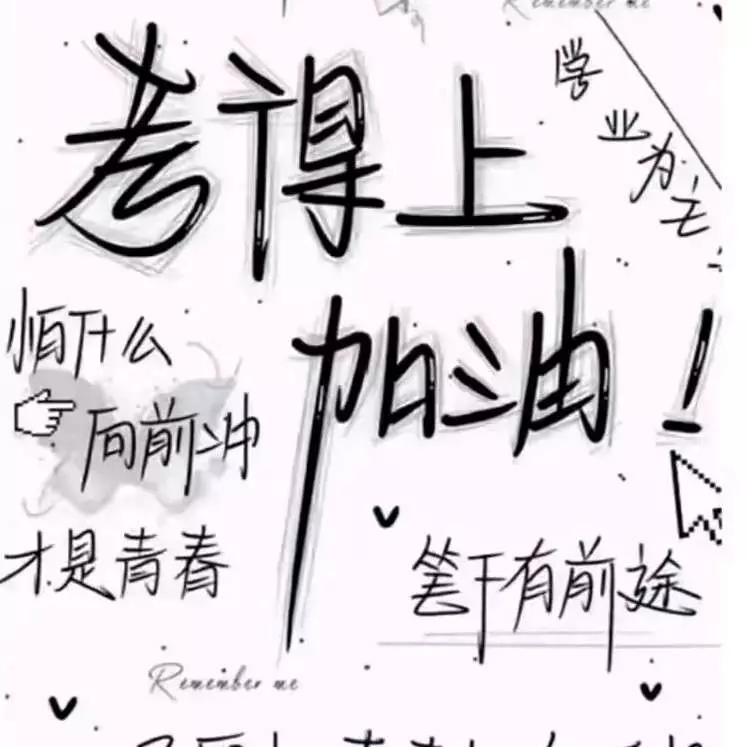 Remember me
考得上
学业为主
加油!
怕什么
向前冲
才是青春
笔下有前途
Remember me